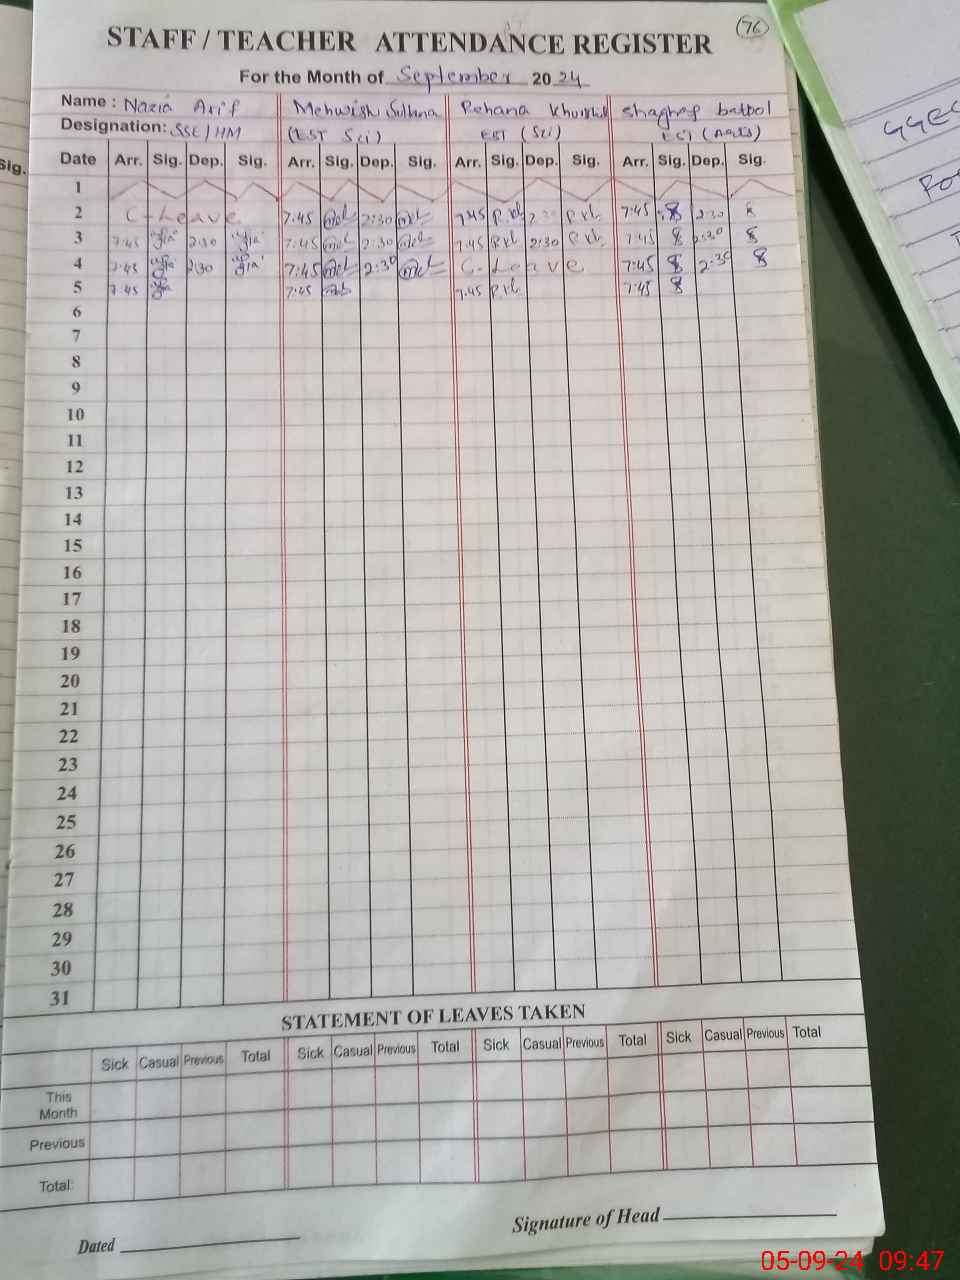 76
STAFF / TEACHER ATTENDANCE REGISTER
For the Month of September 2024
Name : Nazia Arif Mehwish Sultana Rehana Khurshid Shaghaf batool
Designation: SSE/HM (EST Sci) EST (Sci) EST (Arts)
Sig.
Date Arr. Sig. Dep. Sig. Arr. Sig. Dep. Sig. Arr. Sig. Dep. Sig. Arr. Sig. Dep. Sig.
1
2 C-Leave 7:45 2:30 7:45 2:30 7:45 2:30
3 7:45 2:30 7:45 2:30 7:45 2:30 7:45 2:30
4 7:45 2:30 7:45 2:30 C-Leave 7:45 2:30
5 7:45 7:45 7:45 7:45
6
7
8
9
10
11
12
13
14
15
16
17
18
19
20
21
22
23
24
25
26
27
28
29
30
31
STATEMENT OF LEAVES TAKEN
Sick Casual Previous Total Sick Casual Previous Total Sick Casual Previous Total Sick Casual Previous Total
This
Month
Previous
Total:
Dated
Signature of Head
GGEC
05-09-24 09:47